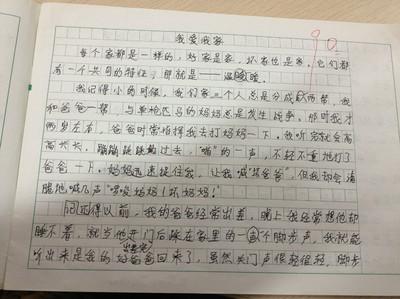 我爱我家
90
每个家都是一样的，好家是家，坏家也是家，它们都
有一个共同的特征，那就是——温暖。
我记得小的时候，我们家三个人总是分成两帮，我
和爸爸一帮，与单枪匹马的妈妈总是发生战争。那时我才
两岁左右，爸爸时常指挥我去打妈妈一下。我听完就会高
高兴兴，蹦蹦跳跳地过去，"啪"的一声，不轻不重地打了
爸爸一下。妈妈迅速捉住我，让我喊"坏爸爸"，但我却会清
脆地喊几声"坏妈妈！坏妈妈！"
记得以前，我的爸爸经常出差，晚上我经常想他却
睡不着，就当他开门后踩在家里的一个脚步声，我就能
听出来是我的好爸爸回来了，虽然关门声很轻很轻，脚步